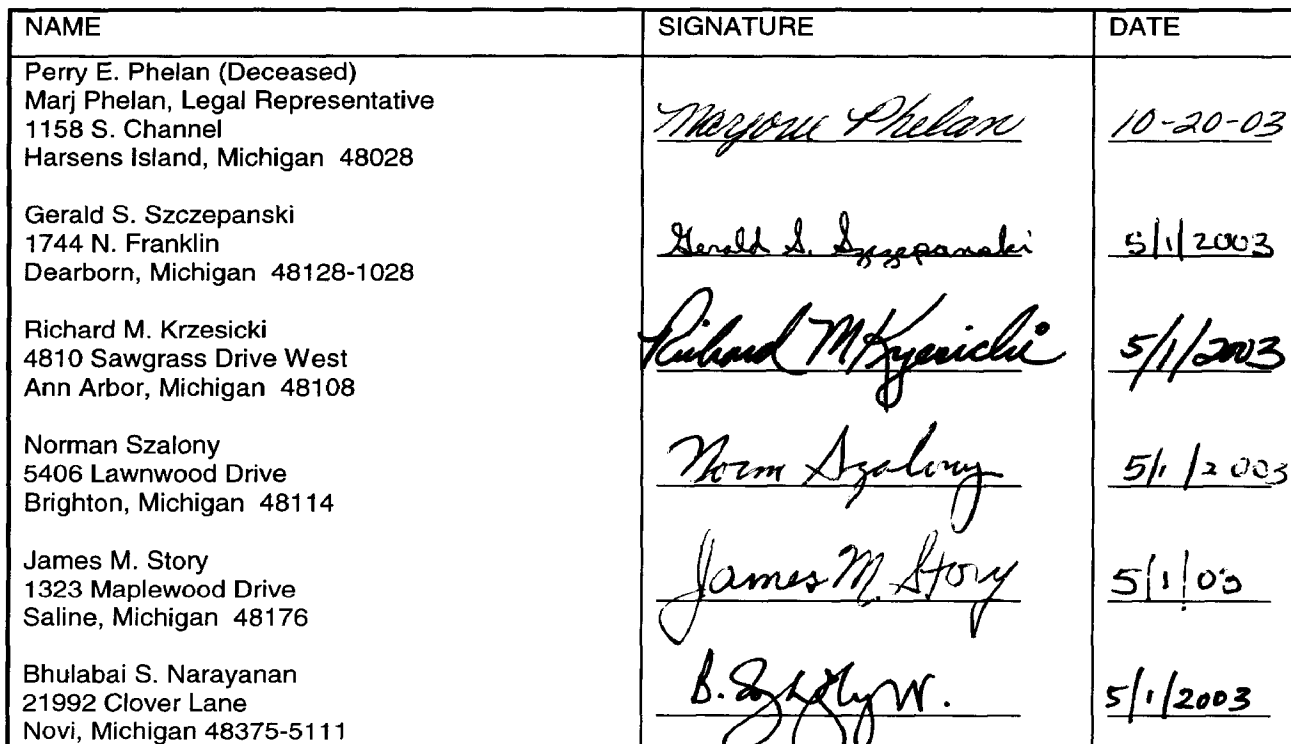 NAME SIGNATURE DATE
Perry E. Phelan (Deceased)
Marj Phelan, Legal Representative
1158 S. Channel
Harsens Island, Michigan 48028
Marjorie Phelan 10-20-03
Gerald S. Szczepanski
1744 N. Franklin
Dearborn, Michigan 48128-1028
Gerald S. Szczepanski 5/1/2003
Richard M. Krzesicki
4810 Sawgrass Drive West
Ann Arbor, Michigan 48108
Richard M Krzesicki 5/1/2003
Norman Szalony
5406 Lawnwood Drive
Brighton, Michigan 48114
Norm Szalony 5/1/2003
James M. Story
1323 Maplewood Drive
Saline, Michigan 48176
James M. Story 5/1/03
Bhulabai S. Narayanan
21992 Clover Lane
Novi, Michigan 48375-5111
B. 5/1/2003